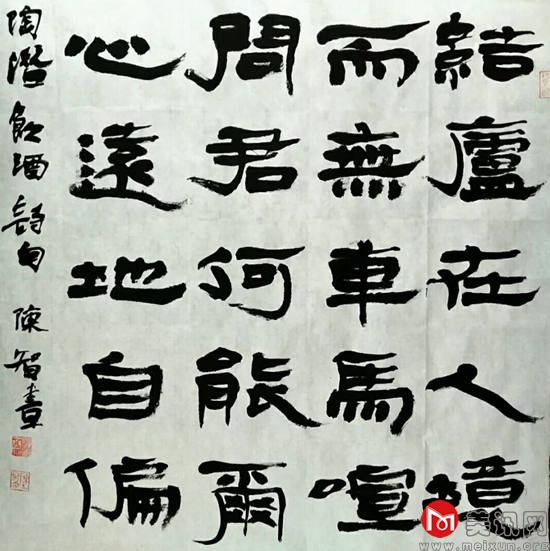 結廬在人境
而無車馬喧
問君何能爾
心遠地自偏
陶潛飲酒詩句 陳智書
美讯网
www.meixun.org